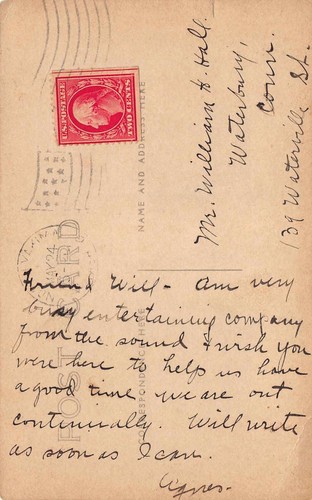 U.S. POSTAGE
TWO CENTS TWO
POST CARD
NAME AND ADDRESS HERE
CORRESPONDENCE HERE
MAY 24
Mr. William H. Hall.
Waterbury,
Conn.
139 Waterville St.
Friend Will - Am very
busy entertaining company
from the sound & wish you
were here to help us have
a good time we are out
continually. Will write
as soon as I can.
Agnes-